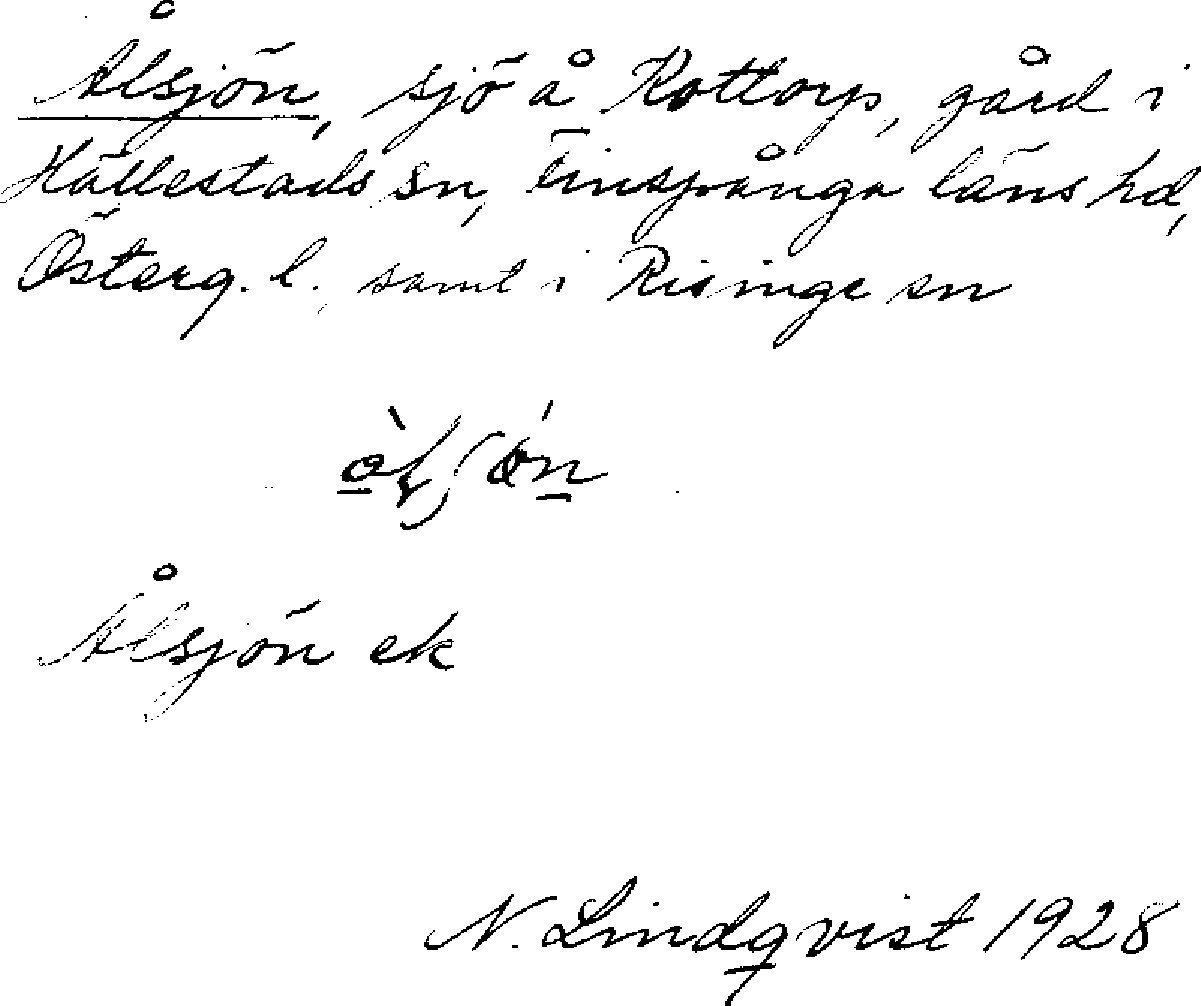 Ålsjön, sjö å Kottorp, gård i
Hällestads sn, Finspånga läns hd,
Österg. l., samt i Risinge sn
Ålsjön ek
N. Lindqvist 1928